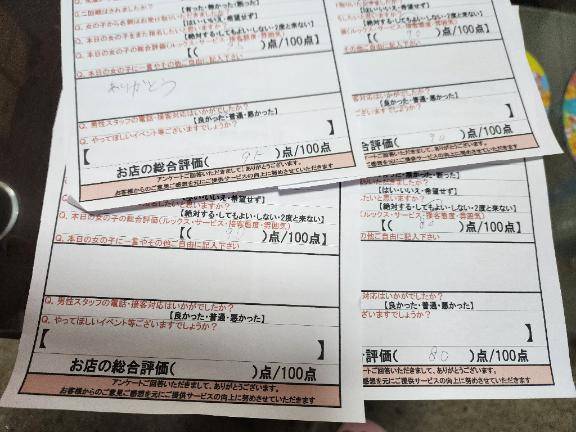 Q.二回戦はされましたか?
【有った・無かった・断った】
Q.女の子から名刺はお受け取りいただきましたか?
【はい・いいえ・希望せず】
Q.本日の女の子をまた指名したいと思いますか?
【絶対する・してもよい・しない・2度と来ない】
Q.本日の女の子の総合評価(ルックス・サービス・接客態度・雰囲気)
【( )点/100点】
Q.本日の女の子に一言やその他ご自由に記入下さい
ありがとう
Q.男性スタッフの電話・接客対応はいかがでしたか?
【良かった・普通・悪かった】
Q.やってほしいイベント等ございますでしょうか?
【
お店の総合評価( )点/100点
アンケートご回答いただきまして、ありがとうございます。
お客様からのご意見ご感想を元にご提供サービスの向上に努めさせていただきます
【はい・いいえ・希望せず】
したいと思いますか?
【絶対する・してもよい・しない・2度と来ない】
(ルックス・サービス・接客態度・雰囲気)
【( 90 )点/100点】
その他ご自由に記入下さい
対応はいかがでしたか?
【良かった・普通・悪かった】
ございますでしょうか?
】
合評価( 90 )点/100点
アンケートご回答いただきまして、ありがとうございます。
ご意見ご感想を元にご提供サービスの向上に努めさせていただきます
【絶対する・してもよい・しない・2度と来ない】
Q.本日の女の子の総合評価(ルックス・サービス・接客態度・雰囲気)
【( )点/100点】
Q.本日の女の子に一言やその他ご自由に記入下さい
Q.男性スタッフの電話・接客対応はいかがでしたか?
【良かった・普通・悪かった】
Q.やってほしいイベント等ございますでしょうか?
【 】
お店の総合評価( )点/100点
アンケートご回答いただきまして、ありがとうございます。
お客様からのご意見ご感想を元にご提供サービスの向上に努めさせていただきます
【はい・いいえ・希望せず】
たいと思いますか?
【絶対する・してもよい・しない・2度と来ない】
(ルックス・サービス・接客態度・雰囲気)
【( 80 )点/100点】
の他ご自由に記入下さい
対応はいかがでしたか?
【良かった・普通・悪かった】
ございますでしょうか?
】
評価( 80 )点/100点
アンケートご回答いただきまして、ありがとうございます。
ご意見ご感想を元にご提供サービスの向上に努めさせていただきます